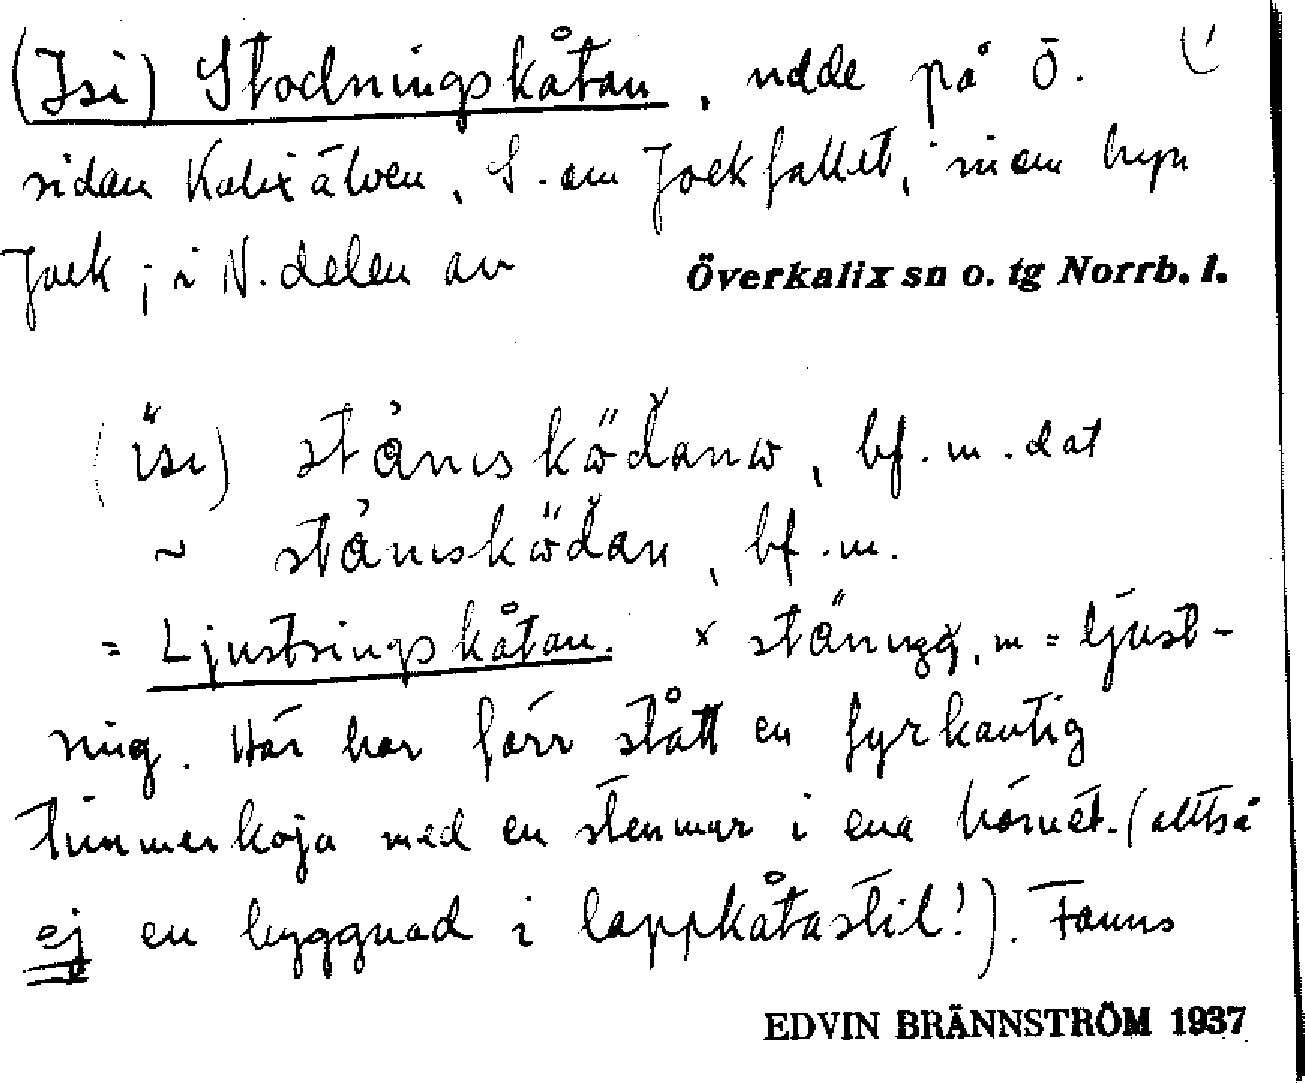 (Isi) Stodningskåtan, udde på Ö.
sidan Kalixälven, S. om Jockfallet, inom byn
Jock; i N. delen av Överkalix sn o. tg Norrb. l.
bf. m. dat
~ bf. m.
= Ljustringskåtan. × m = ljust-
ring. Här har förr stått en fyrkantig
timmerkoja med en stenmur i ena hörnet. (alltså
ej en byggnad i lappkåtastil!). Fanns
EDVIN BRÄNNSTRÖM 1937